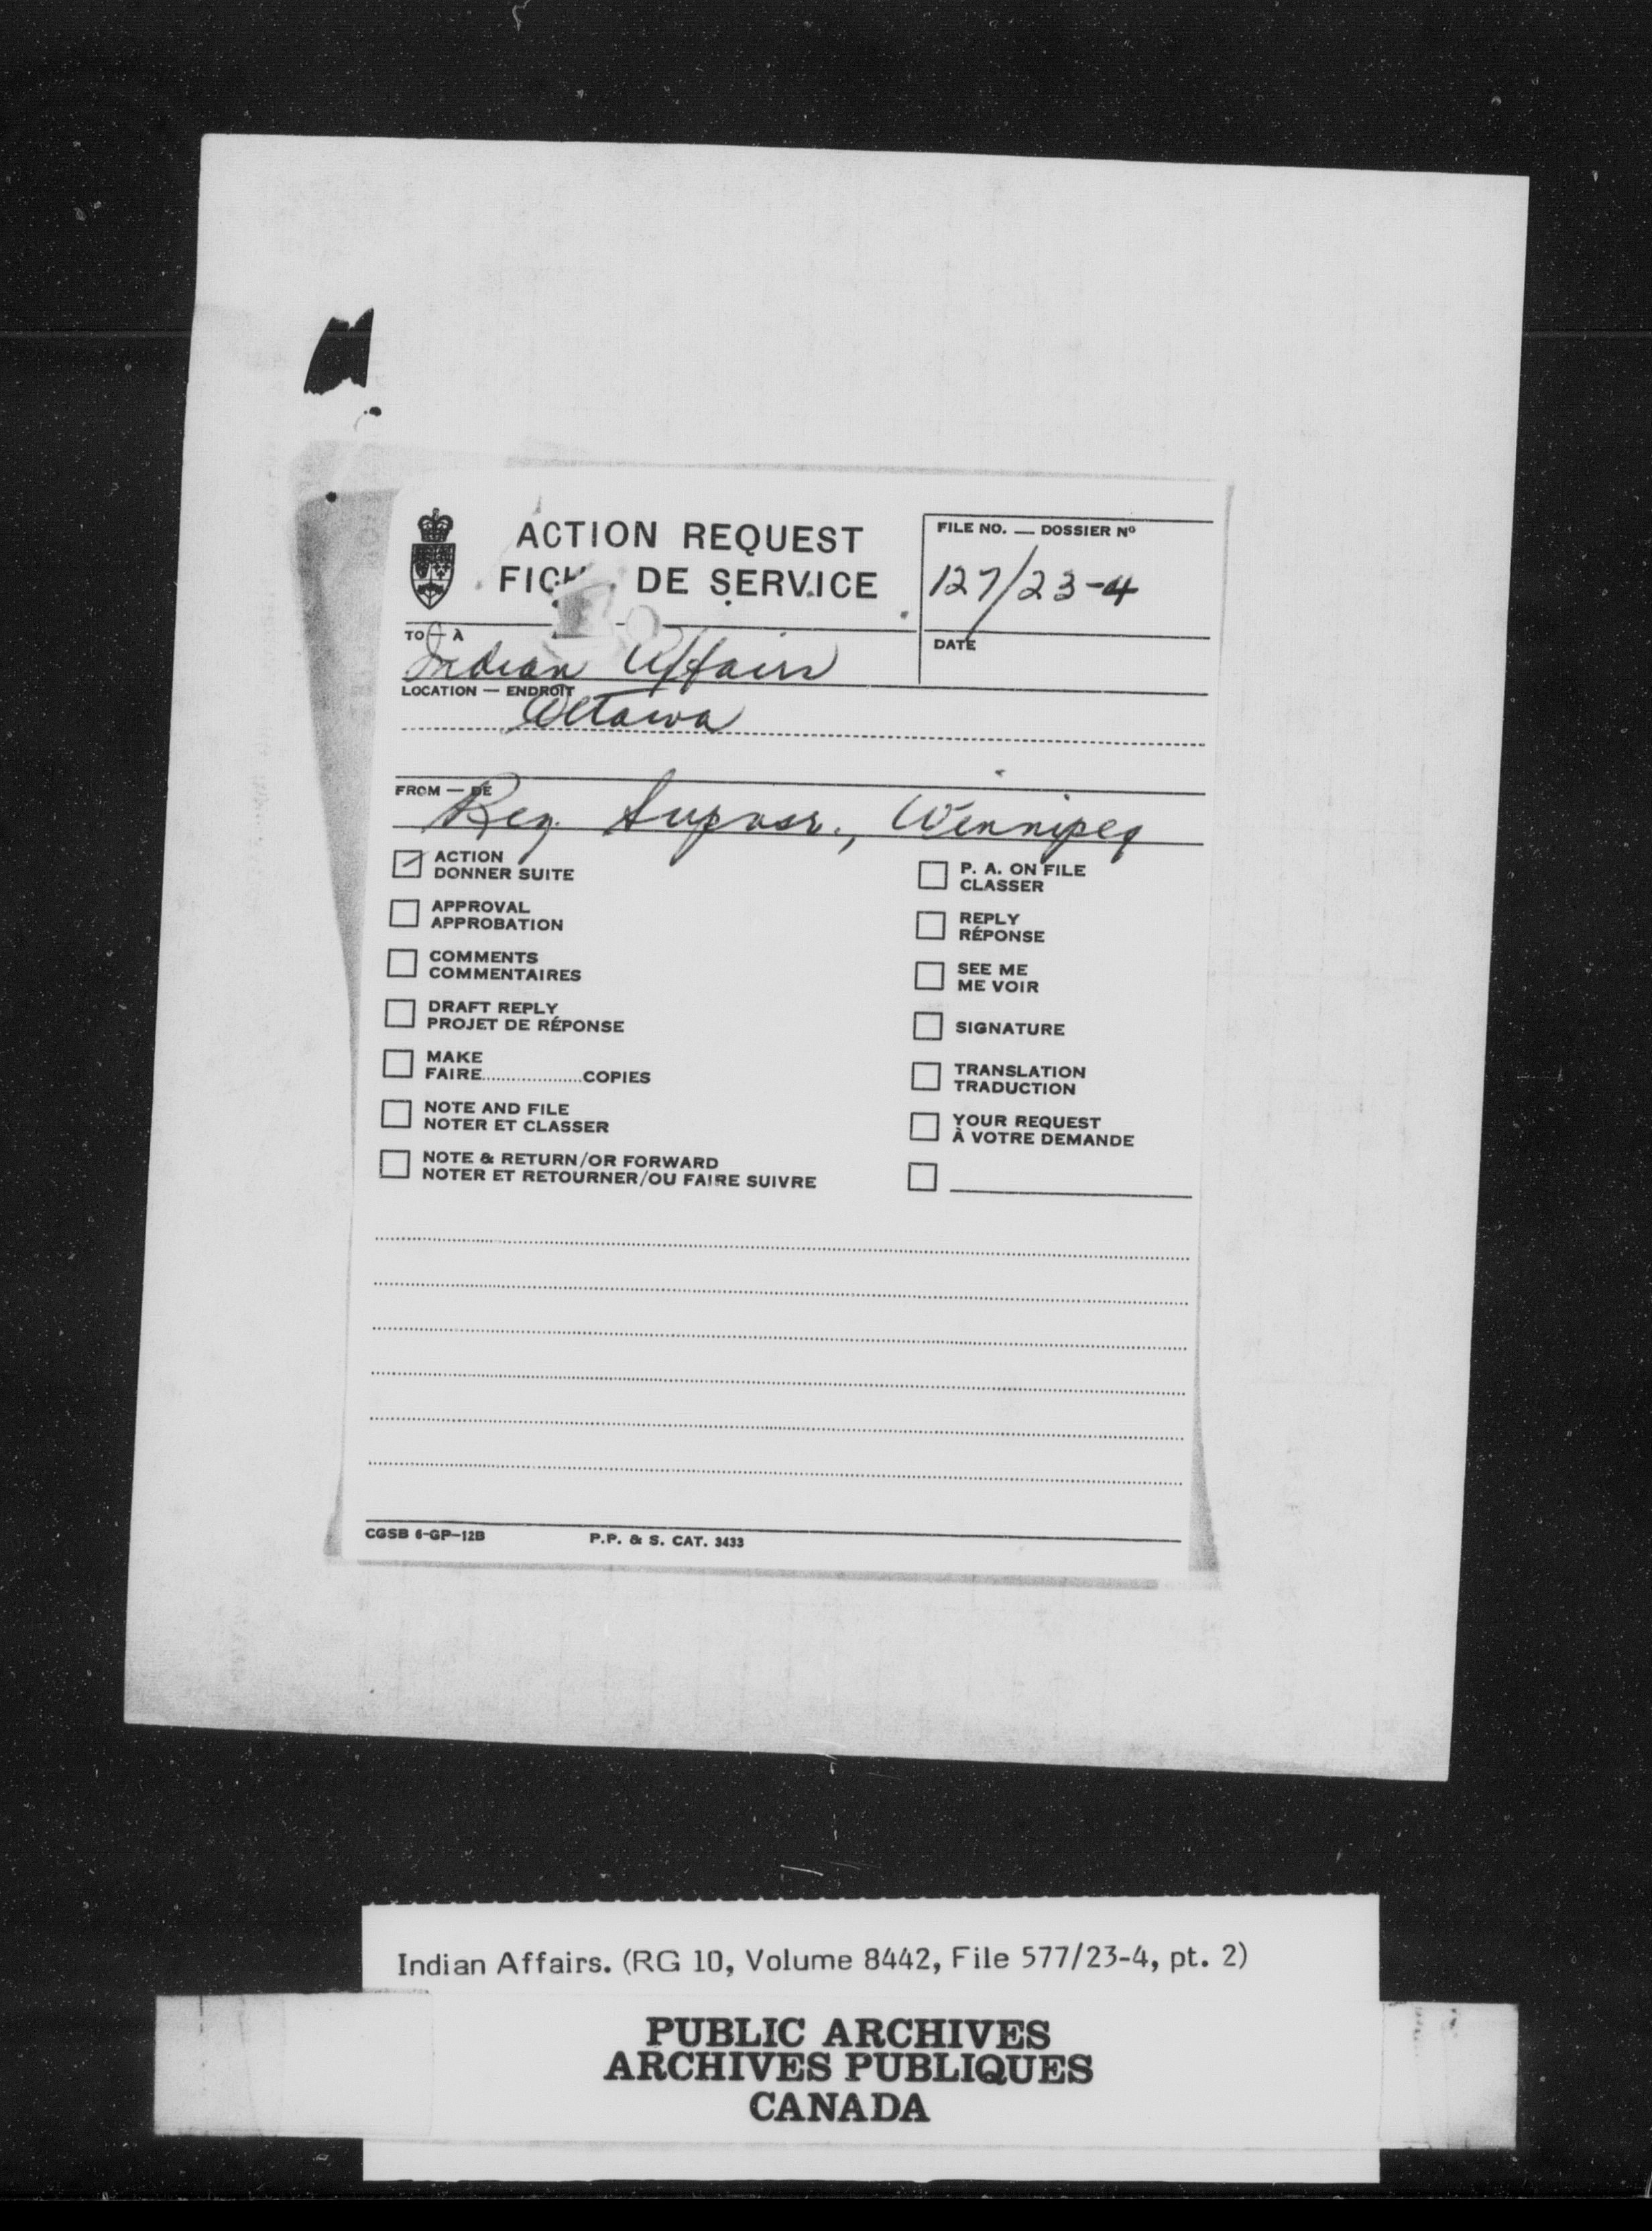 ACTION REQUEST
FICH DE SERVICE
FILE NO. — DOSSIER Nº
127/23-4
TO — À
Indian Affairs
DATE
LOCATION — ENDROIT
Ottawa
FROM — DE
Reg. Supvsr., Winnipeg
ACTION
DONNER SUITE
APPROVAL
APPROBATION
COMMENTS
COMMENTAIRES
DRAFT REPLY
PROJET DE RÉPONSE
MAKE
FAIRE..................COPIES
NOTE AND FILE
NOTER ET CLASSER
NOTE & RETURN/OR FORWARD
NOTER ET RETOURNER/OU FAIRE SUIVRE
P. A. ON FILE
CLASSER
REPLY
RÉPONSE
SEE ME
ME VOIR
SIGNATURE
TRANSLATION
TRADUCTION
YOUR REQUEST
À VOTRE DEMANDE
CGSB 6-GP-12B P.P. & S. CAT. 3433
Indian Affairs. (RG 10, Volume 8442, File 577/23-4, pt. 2)
PUBLIC ARCHIVES
ARCHIVES PUBLIQUES
CANADA